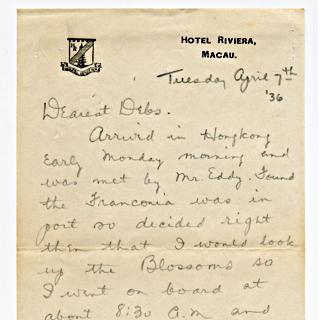 HOTEL RIVIERA,
MACAU.
Tuesday April 7th
'36
Dearest Debs.
Arrivd in Hongkong
early Monday morning and
was met by Mr. Eddy. Found
the Franconia was in
port so decided right
then that I would look
up the Blossoms so
I went on board at
about 8:30 A.M and